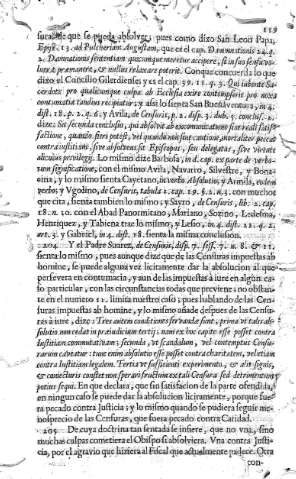 119
suras de que se pueda absolver; pues como dixo San Leon Papa,
Epist. 13. ad Pulcheriam Augustam, que es el cap. Damnationis 24. q.
2. Damnationis sententiam quocumque meretur accipere, si in suo sensu vo-
luerit permanere, & nullus relaxare poterit. Con que concuerda lo que
dixo el Concilio Gilerdense; y es el cap. 39. 11. q. 3. Qui iubente Sa-
cerdote pro qualicumque culpa ab Ecclesia exire contempserit pro noxa
contumaciae tardius recipiatur; y assi lo sienta San Buenaventura, in 4.
dist. 18. p. 2. q. 6. y Avila, de Censuris, p. 2. disp. 3. dub. 5. conclus. 2.
dize: Sit secunda conclusio, qui absolvit ab excommunicatione iuxta satis-
factione, quando fieri potest, vel quando non fiat cautione, mortaliter peccat
contra iustitiam, sive absolvens sit Episcopus, seu delegatus, sive virtute
alicuius privilegij. Lo mismo dize Barbosa, in d. cap. ex parte de verbo-
rum significatione, con el mismo Avila, Navarro, Silvestre, y Bona-
cina, y lo mismo sienta Cayetano, in verbo Absolutio, y Armila, eodem
verbo; y Vgolino, de Censuris, tabula 1. cap. 19. §. 2. n. 3. con muchos
que cita, sienta tambien lo mismo; y Sayro, de Censuris, lib. 2. cap.
18. n. 10. con el Abad Panormitano, Mariano, Sozino, Ledesma,
Henriquez, y Tabiena trae lo mismo, y Lesio, in 4. dist. 12. q. 2.
art. 3. y Gabriel, in 4. dist. 18. sienta la misma conclusion.
204. Y el Padre Suarez, de Censuris, disp. 7. sect. 7. n. 8. & 11.
sienta lo mismo, pues aunque dize que de las Censuras impuestas ab
homine, se puede alguna vez licitamente dar la absolucion al que
persevera en contumacia, y aun de las impuestas à iure en algun ca-
so particular, con las circunstancias todas que previene: no obstan-
te en el numero 12. limita nuestro caso; pues hablando de las Cen-
suras impuestas ab homine, y lo mismo añade despues de las Censu-
ras à iure, dize: Tres autem conditiones servandae sunt, prima ut talis ab-
solutio non cedat in praeiudicium tertij: nam ex hoc capite esse posset contra
iustitiam commutativam; secunda, ut scandalum, vel contemptus Censu-
rarum caveatur: tum enim absolutio esse posset contra charitatem, vel etiam
contra iustitiam legalem. Tertia ut sufficienti experimento, & ex signis,
& coniecturis constet non sperari fructum ex tali Censura sed detrimentum
potius sequi. En que declara, que sin satisfacion de la parte ofendida,
en ningun caso se puede dar la absolucion licitamente, porque fue-
ra pecado contra Justicia; y lo mismo quando se pudiera seguir me-
nosprecio de las Censuras, que fuera pecado contra Caridad.
205. De cuya doctrina tan sentada se insiere, que no vna, sino
muchas culpas cometiera el Obispo si absolviera. Vna contra Justi-
cia, por el agravio que hiziera al Fiscal que actualmente padece. Otra
con-